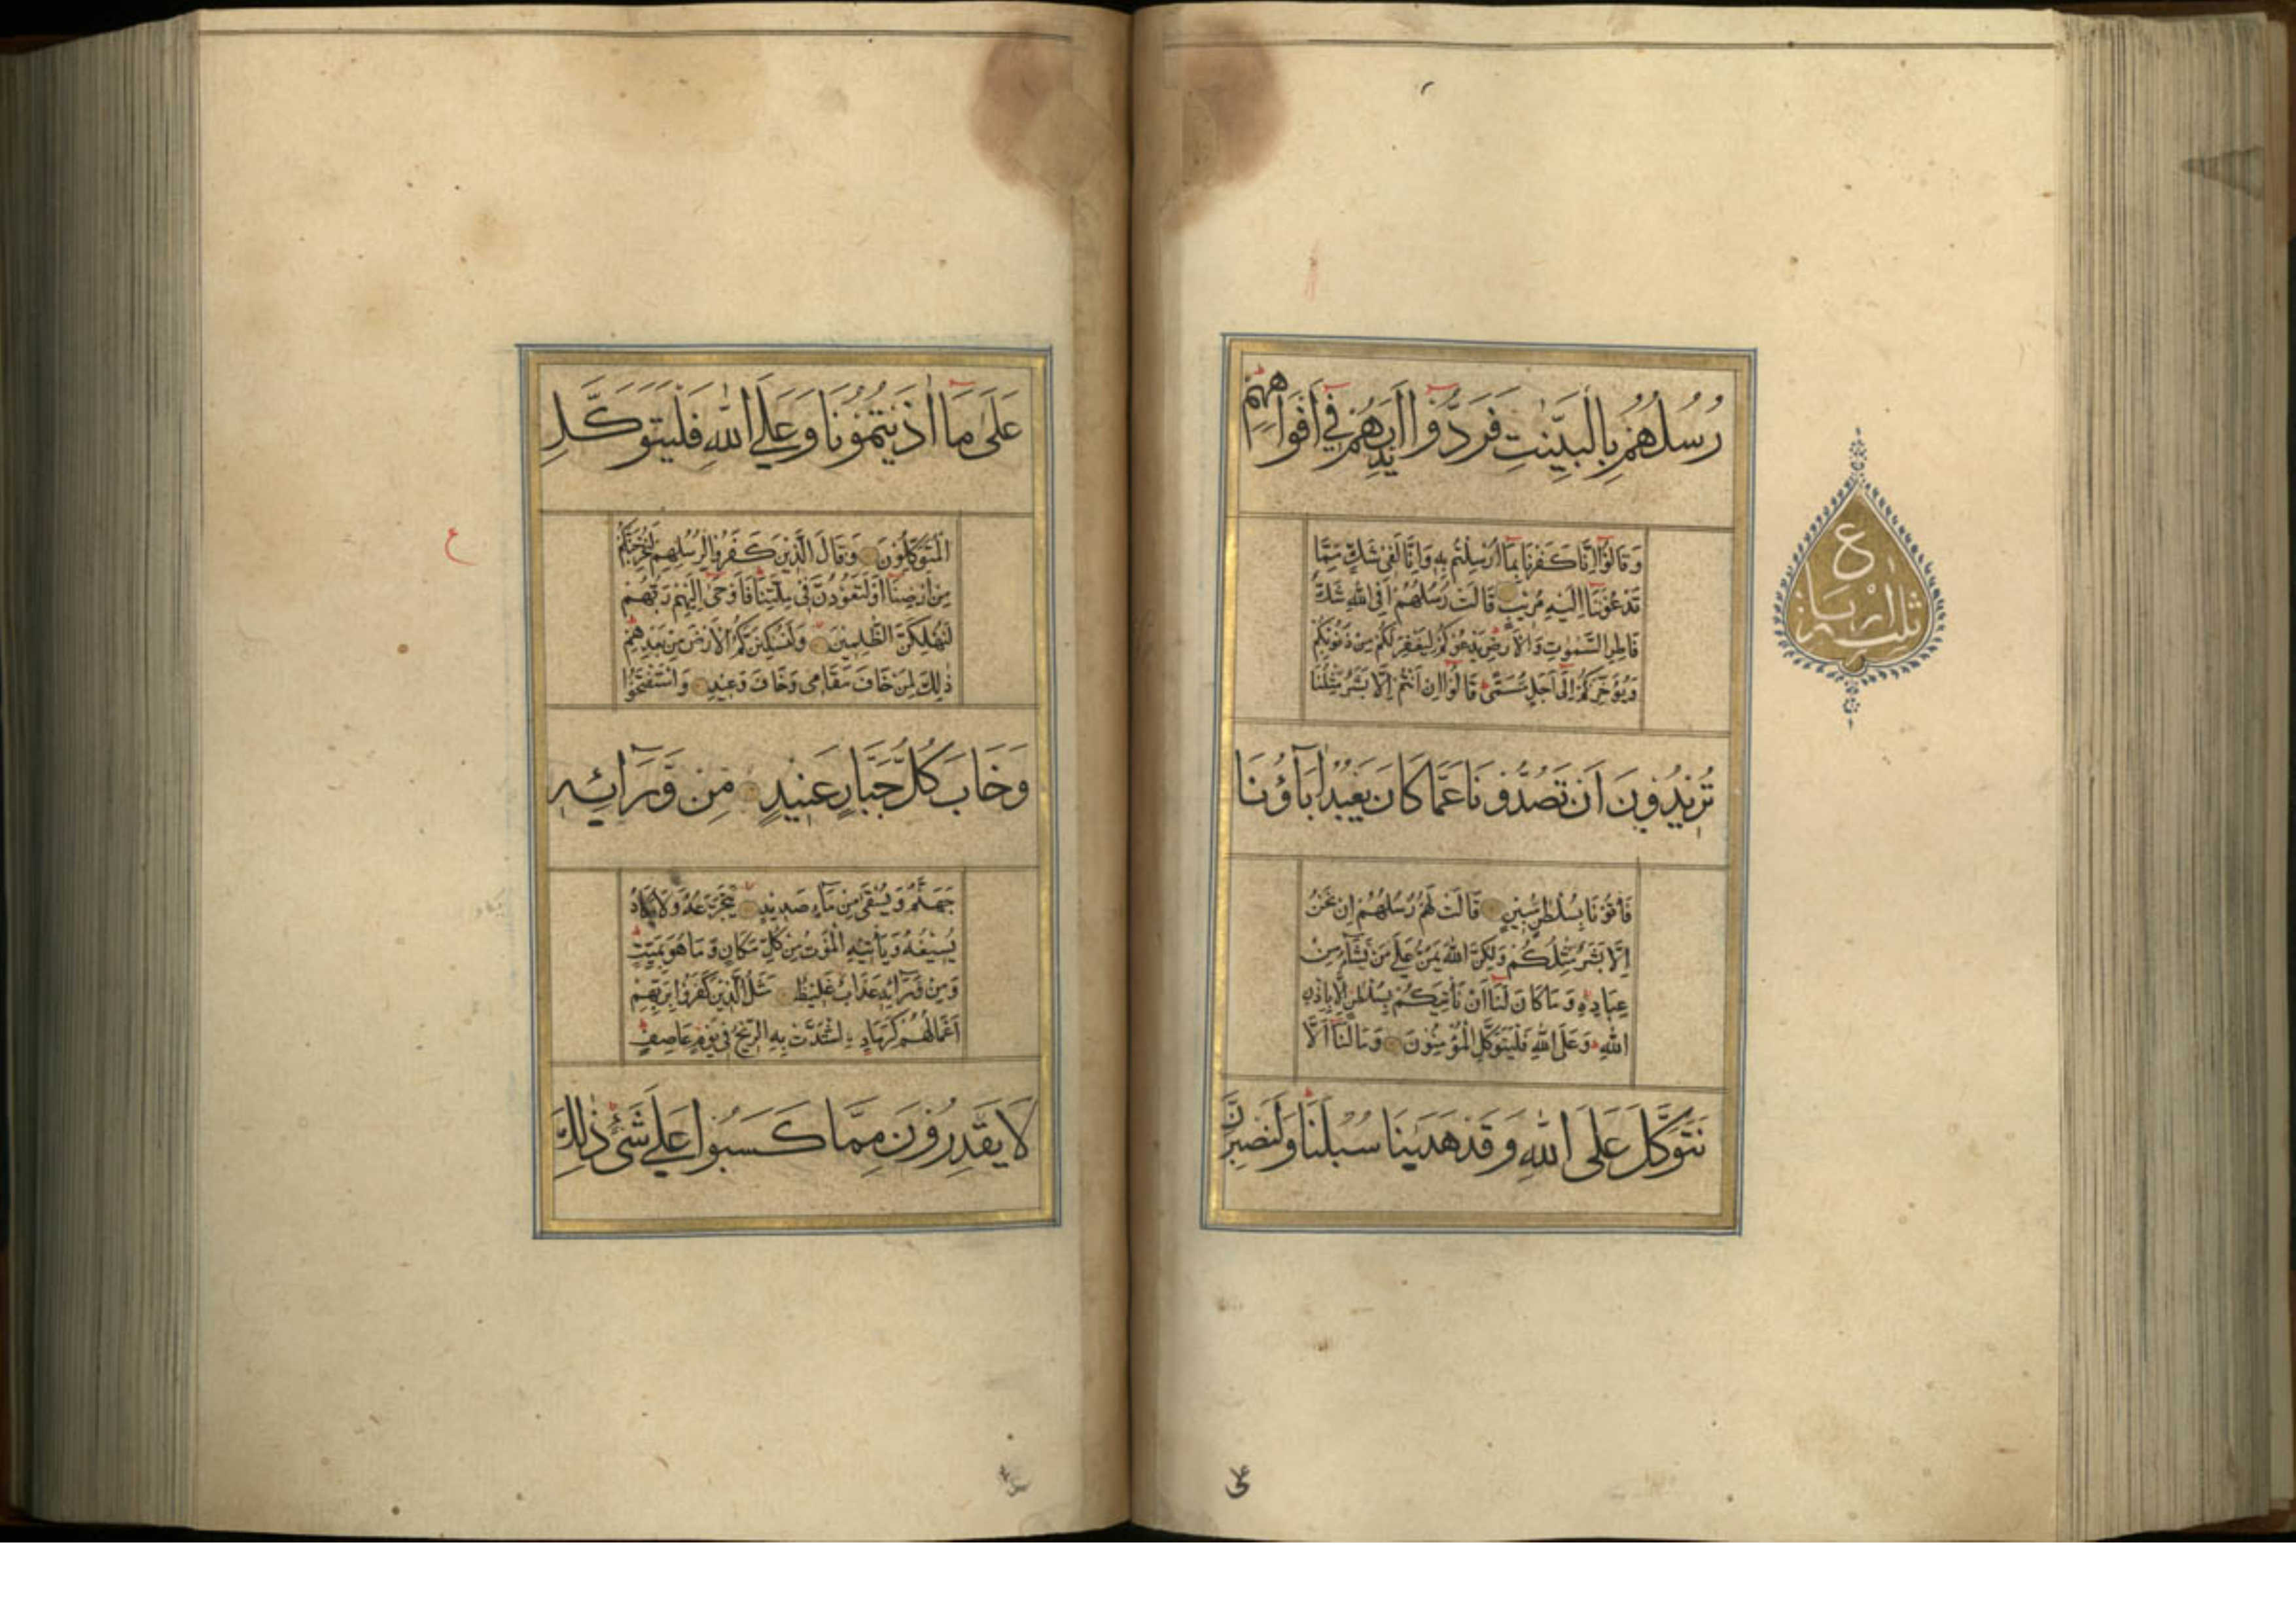 رُسُلُهُمْ بِالْبَيِّنٰتِ فَرَدُّوْا اَيْدِيَهُمْ فِيْ اَفْوَاهِهِمْ
وَقَالُوْا اِنَّا كَفَرْنَا بِمَا اُرْسِلْتُمْ بِهٖ وَاِنَّا لَفِيْ شَكٍّ مِّمَّا
تَدْعُوْنَنَا اِلَيْهِ مُرِيْبٍ قَالَتْ رُسُلُهُمْ اَفِي اللهِ شَكٌّ
فَاطِرِ السَّمٰوٰتِ وَالْاَرْضِ يَدْعُوْكُمْ لِيَغْفِرَ لَكُمْ مِنْ ذُنُوْبِكُمْ
وَيُؤَخِّرَكُمْ اِلٰى اَجَلٍ مُّسَمًّى قَالُوْا اِنْ اَنْتُمْ اِلَّا بَشَرٌ مِّثْلُنَا
تُرِيْدُوْنَ اَنْ تَصُدُّوْنَا عَمَّا كَانَ يَعْبُدُ اٰبَآؤُنَا
فَأْتُوْنَا بِسُلْطٰنٍ مُّبِيْنٍ قَالَتْ لَهُمْ رُسُلُهُمْ اِنْ نَحْنُ
اِلَّا بَشَرٌ مِّثْلُكُمْ وَلٰكِنَّ اللهَ يَمُنُّ عَلٰى مَنْ يَّشَآءُ مِنْ
عِبَادِهٖ وَمَا كَانَ لَنَا اَنْ نَأْتِيَكُمْ بِسُلْطٰنٍ اِلَّا بِاِذْنِ
اللهِ وَعَلَى اللهِ فَلْيَتَوَكَّلِ الْمُؤْمِنُوْنَ وَمَا لَنَا اَلَّا
نَتَوَكَّلَ عَلَى اللهِ وَقَدْ هَدٰىنَا سُبُلَنَا وَلَنَصْبِرَنَّ
ع
ثلث ارباع
عَلٰى مَا اٰذَيْتُمُوْنَا وَعَلَى اللهِ فَلْيَتَوَكَّلِ
الْمُتَوَكِّلُوْنَ وَقَالَ الَّذِيْنَ كَفَرُوْا لِرُسُلِهِمْ لَنُخْرِجَنَّكُمْ
مِنْ اَرْضِنَا اَوْ لَتَعُوْدُنَّ فِيْ مِلَّتِنَا فَاَوْحٰى اِلَيْهِمْ رَبُّهُمْ
لَنُهْلِكَنَّ الظّٰلِمِيْنَ وَلَنُسْكِنَنَّكُمُ الْاَرْضَ مِنْ بَعْدِهِمْ
ذٰلِكَ لِمَنْ خَافَ مَقَامِيْ وَخَافَ وَعِيْدِ وَاسْتَفْتَحُوْا
وَخَابَ كُلُّ جَبَّارٍ عَنِيْدٍ مِّنْ وَّرَآئِهٖ
جَهَنَّمُ وَيُسْقٰى مِنْ مَّآءٍ صَدِيْدٍ يَتَجَرَّعُهٗ وَلَا يَكَادُ
يُسِيْغُهٗ وَيَأْتِيْهِ الْمَوْتُ مِنْ كُلِّ مَكَانٍ وَّمَا هُوَ بِمَيِّتٍ
وَمِنْ وَّرَآئِهٖ عَذَابٌ غَلِيْظٌ مَثَلُ الَّذِيْنَ كَفَرُوْا بِرَبِّهِمْ
اَعْمَالُهُمْ كَرَمَادِ ۨاشْتَدَّتْ بِهِ الرِّيْحُ فِيْ يَوْمٍ عَاصِفٍ
لَا يَقْدِرُوْنَ مِمَّا كَسَبُوْا عَلٰى شَيْءٍ ذٰلِكَ
ع